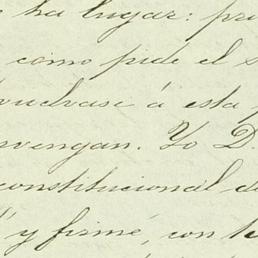 ha lugar: pri
como pide el s
vuelvase á esta
vengan. Yo D.
constitucional de
y firmé, con